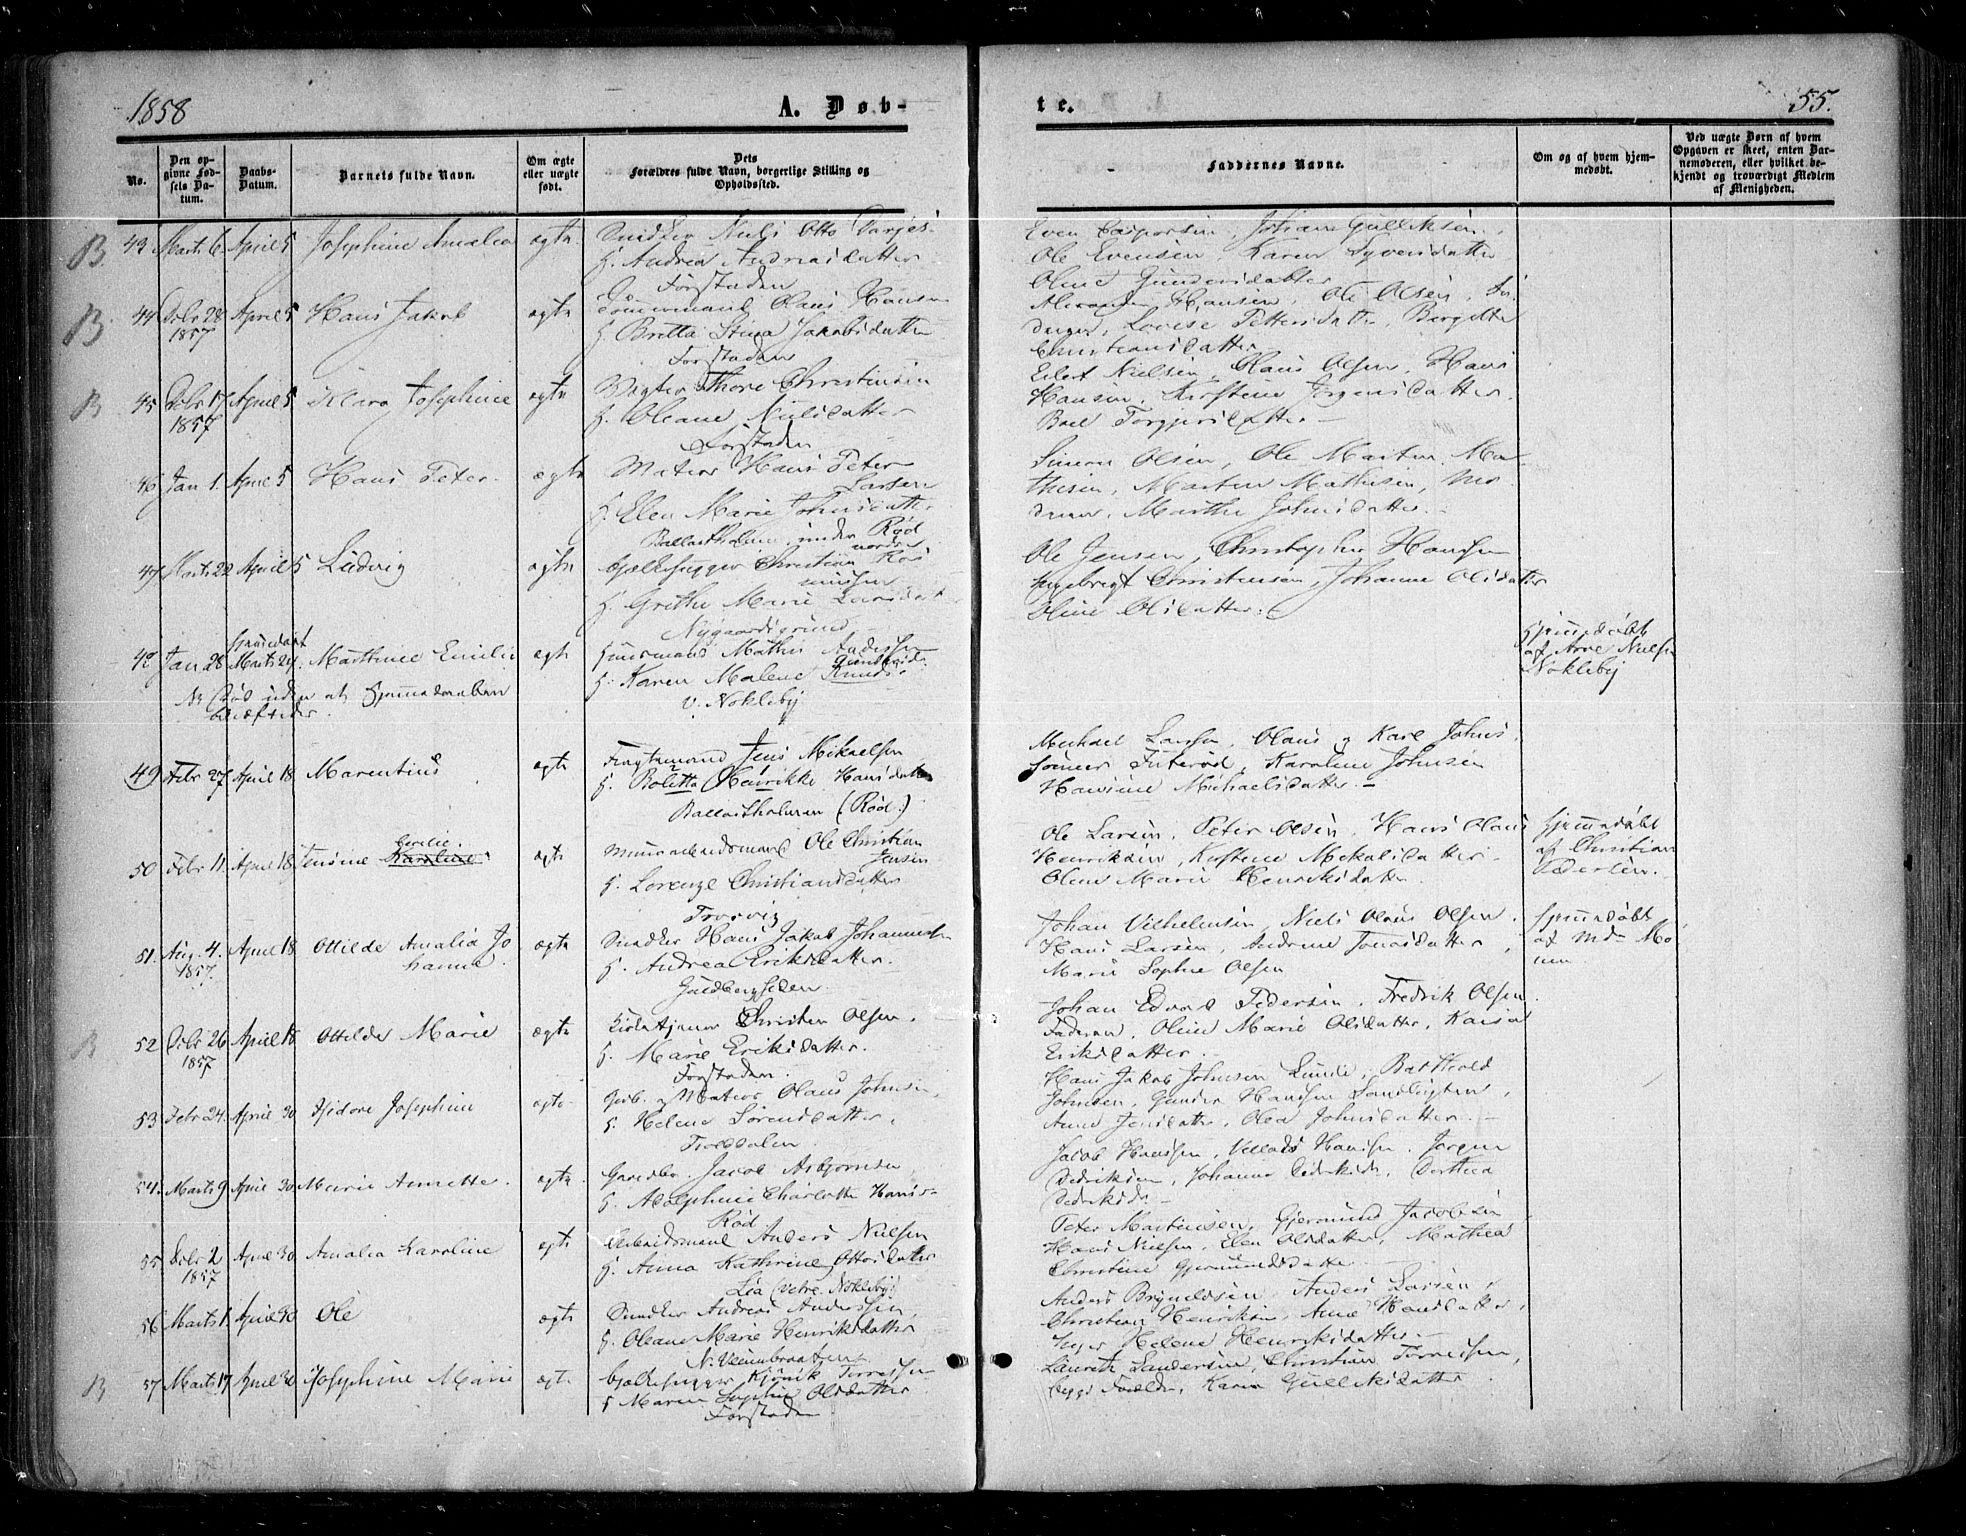 1858
A. Døb-
te.
55.
No.
Den op-
givne Fød-
sels Da-
tum.
Daabs-
Datum.
Barnets fulde Navn.
Om ægte
eller uægte
født.
Dets
Forældres fulde Navn, borgerlige Stilling og
Opholdssted.
Faddernes Navne.
Om og af hvem hjem-
medøbt.
Ved uægte Børn af hvem
Opgaven er skeet, enten Bar-
nemoderen, eller hvilket be-
kjendt og troværdigt Medlem
af Menigheden.
B. 43 Marts 6. April 5 Josephine Amalia ægte Snedker Niels Otto
H. Andrea Andreasdatter
Forstaden
Even Casparsen, Johan Gulliksen,
Ole Evensen, Karen Syversdatter
Oline Gundersdatter
B. 44 Octbr 28 1857 April 5 Hans Jakob ægte Tømmermand Olaus Hansen
H. Britta Stina Jakobsdatter
Forstaden
Alexander Hansen, Ole Olsen,
Lovise Pettersdatter, Bergitte
Christiansdatter
B 45 1857 April 5 Klara Josephine ægte Thore Christensen
H. Oleane Nielsdatter
Forstaden
Eilert Nielsen, Olaus Olsen, Hans
Hansen, Kirstine Jørgensdatter,
Boel Torgjersdatter
46 Jan 1. April 5 Hans Peter. ægte Matros Hans Peter
Larsen
H. Elen Marie Johnsdatter
Ballastholmen under Rød
nordre
Simon Olsen, Ole Martin Ma-
thisen, Martin Mathisen,
Marthe Johnsdatter.
47 Marts 22 April 5 Ludvig ægte Bjelkehugger Christian Ras
mussen
H. Grethe Marie Larsdatter
Nygaardsgrund
Ole Jensen, Christopher Hansen
Ingebregt Christensen, Johanne Olsdatter
Oline Olsdatter.
48 Jan 28 Hjemedøbt Marts 24. Marthine Emilie ægte Huusmand Mathis Andersen
H. Karen Malene Knuds
v. Nokleby
Hjemmedøbt
af Arne Nielsen
Nokleby
NB Død uden at Hjemmedaaben
bekræftedes.
49 Febr 27 April 18 Marentius ægte Jens Mikaelsen
H. Boletta Henrikke Hansdatter
Ballastholmen (Rød.)
Michael Larsen, Olaus og Karl Johns
sønner Futerød, Karoline Johnsen
Hansine Michaelsdatter.
50 Febr 11. April 18 Jensine Karoline ægte Muurarbeidsmand Ole Christian
Jensen
H. Lorenze Christiansdatter
Trosvig
Ole Larsen, Peter Olsen, Hans Olaus
Henriksen, Kirstine Mikalsdatter
Oline Marie Henriksdatter.
Hjemmedøbt
af Christian
Pedersen.
51. Aug. 4. 1857. April 18 Ottilde Amalia Jo
hanne. ægte Snedker Hans Jakob Johannesen
H. Andrea Eriksdatter.
Guldbergsiden.
Johan Vilhelmsen, Niels Olaus Olsen.
Hans Larsen, Andrine Jonasdatter,
Marie Sophie Olsen
Hjemmedøbt
af
B 52 Octbr 26 1857 April 18 Ottilde Marie ægte Christen Olsen.
H. Marie Eriksdatter.
Forstaden.
Johan Edvard Pedersen. Fredrik Olsen
Faderen, Oline Marie Olsdatter, Kaisa
Eriksdatter.
53 Febr 24. April 30 Isidore Josephine ægte Gdb. og Matros Olaus Johnsen
H. Helene Sørensdatter,
Torsdalen
Hans Jakob Johnsen Lunde, Barthold
Johnsen, Gunder Hansen,
Anne Jensdatter, Olea Johnsdatter.
54. Marts 9 April 30 Marie Annette. ægte Gaardbr. Jacob Asbjørnsen
H. Adolphine Charlotte Hans-
Rød
Jacob Hansen, Hansen. Jørgen
Didriksen, Johanne Didriksdr, Dorthea
Didriksdr.
55. Octbr 2 1857 April 30 Amalia Karoline ægte Arbeidsmand Anders Nielsen
H. Anna Kathrine Ottersdatter
Lia (vetre Nokleby)
Peter Martinsen, Gjermund Jacobsen
Hans Nielsen, Elen Olsdatter, Mathea
Christine Gjermundsdatter
56 Marts 1. April 30 Ole ægte Snedker Andreas Anderssen,
H. Oleane Marie Henriksdatter
N. Veumbraaten
Anders Brynildsen, Anders Larsen
Christian Henriksen, Anne Hansdatter,
Inger Helene Henriksdatter.
B 57 Marts 17 April 30 Josephine Marie ægte Bjelkehugger Torresen
H Maren Sophie Olsdatter
Forstaden
Laurits Sandersen, Christian Torresen,
Begge Forældr, Karen Gulliksdatter